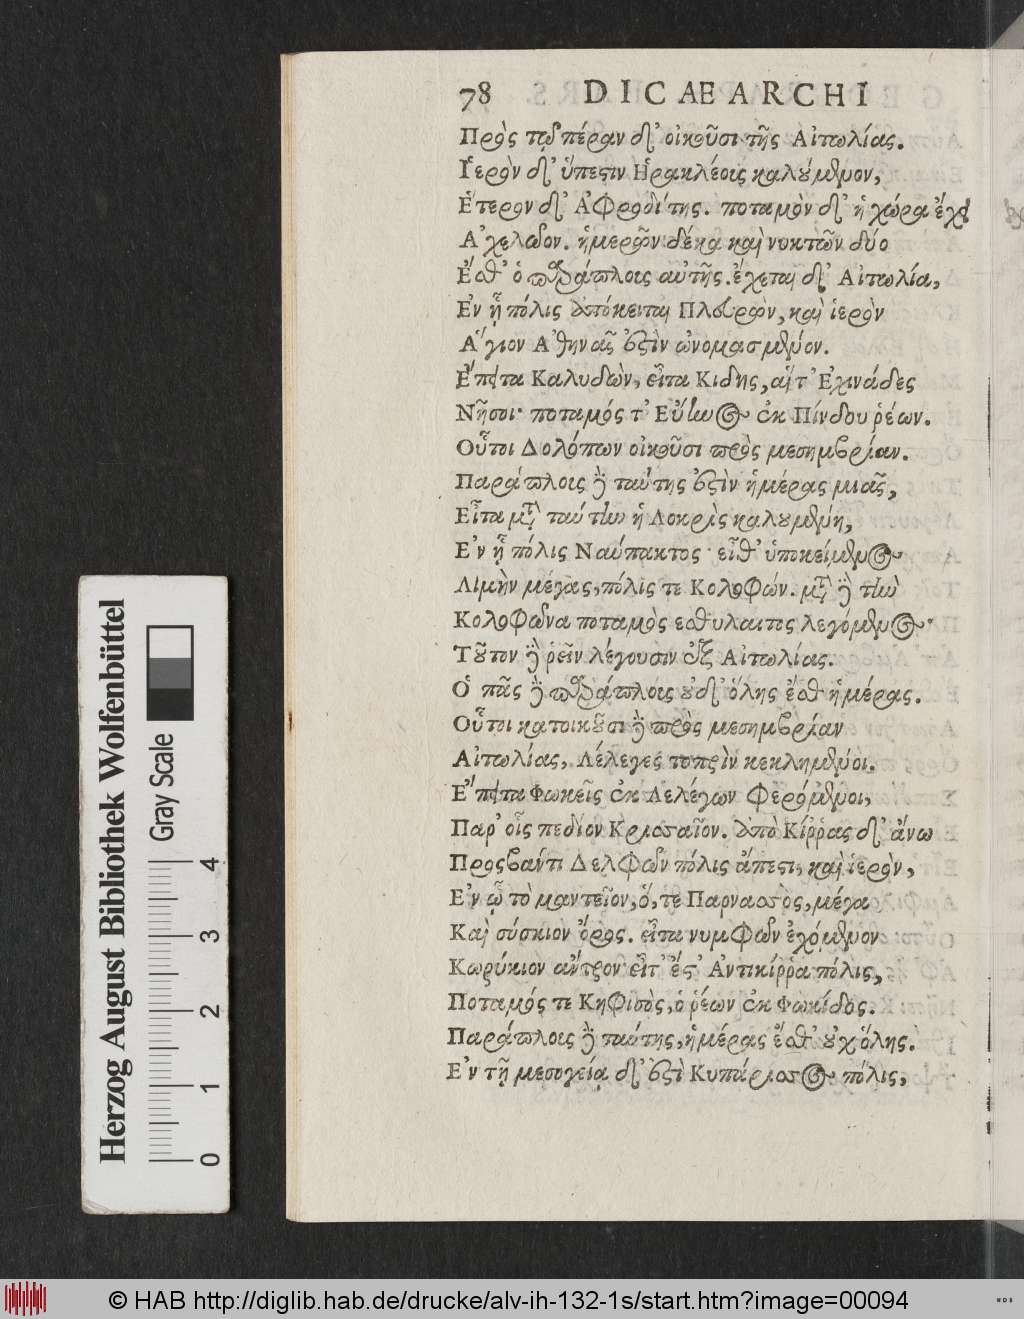 78 DICAEARCHI
Πρὸς τῷ πέραν δ᾽ οἰκοῦσι τῆς Αἰτωλίας.
Ἱερὸν δ᾽ ὕπεστιν Ἡρακλέους καλούμενον,
Ἕτερον δ᾽ Ἀφροδίτης. ποταμὸν δ᾽ ἡ χώρα ἔχει
Ἀχελῶον. ἡμερῶν δέκα καὶ νυκτῶν δύο
Ἔσθ᾽ ὁ παράπλους αὐτῆς. ἔχεται δ᾽ Αἰτωλία,
Ἐν ᾗ πόλις ἀπόκειται Πλευρὼν, καὶ ἱερὸν
Ἅγιον Ἀθηνᾶς ἐστὶν ὠνομασμένον.
Ἔπειτα Καλυδὼν, εἶτα Κιδης, αἵ τ᾽ Ἐχινάδες
Νῆσοι· ποταμός τ᾽ Εὔηνος ἐκ Πίνδου ῥέων.
Οὗτοι Δολόπων οἰκοῦσι πρὸς μεσημβρίαν.
Παράπλους δὲ ταύτης ἐστὶν ἡμέρας μιᾶς,
Εἶτα μετὰ ταύτην ἡ Λοκρὶς καλουμένη,
Ἐν ᾗ πόλις Ναύπακτος· εἶθ᾽ ὑποκείμενος
Λιμὴν μέγας, πόλις τε Κολοφών. μετὰ δὲ τὴν
Κολοφῶνα ποταμὸς εσθυλαιτος λεγόμενος·
Τοῦτον δὲ ῥεῖν λέγουσιν ἐξ Αἰτωλίας.
Ὁ πᾶς δὲ παράπλους οὐδ᾽ ὅλης ἔσθ᾽ ἡμέρας.
Οὗτοι κατοικοῦσι δὲ πρὸς μεσημβρίαν
Αἰτωλίας, Λέλεγες τοπρὶν κεκλημένοι.
Ἔπειτα Φωκεῖς ἐκ Λελέγων φερόμενοι,
Παρ᾽ οἷς πεδίον Κρισσαῖον. ἀπὸ Κίῤῥας δ᾽ ἄνω
Προςβαντι Δελφῶν πόλις ἄπεστι, καὶ ἱερὸν,
Ἐν ᾧ τὸ μαντεῖον, ὅ, τε Παρνασσὸς, μέγα
Καὶ σύσκιον ὄρος. εἶτα νυμφῶν ἐχόμενον
Κωρύκιον ἄντρον· εἶτ᾽ ἔστ᾽ Ἀντικίῤῥα πόλις,
Ποταμός τε Κηφισὸς, ὁ ῥέων ἐκ Φωκίδος.
Παράπλους δὲ ταύτης, ἡμέρας ἔσθ᾽ οὐχ ὅλης.
Ἐν τῇ μεσογείᾳ δ᾽ ἐστὶ Κυπάρισσος πόλις,
Herzog August Bibliothek Wolfenbüttel
Gray Scale
0 1 2 3 4
© HAB http://diglib.hab.de/drucke/alv-ih-132-1s/start.htm?image=00094
WDB